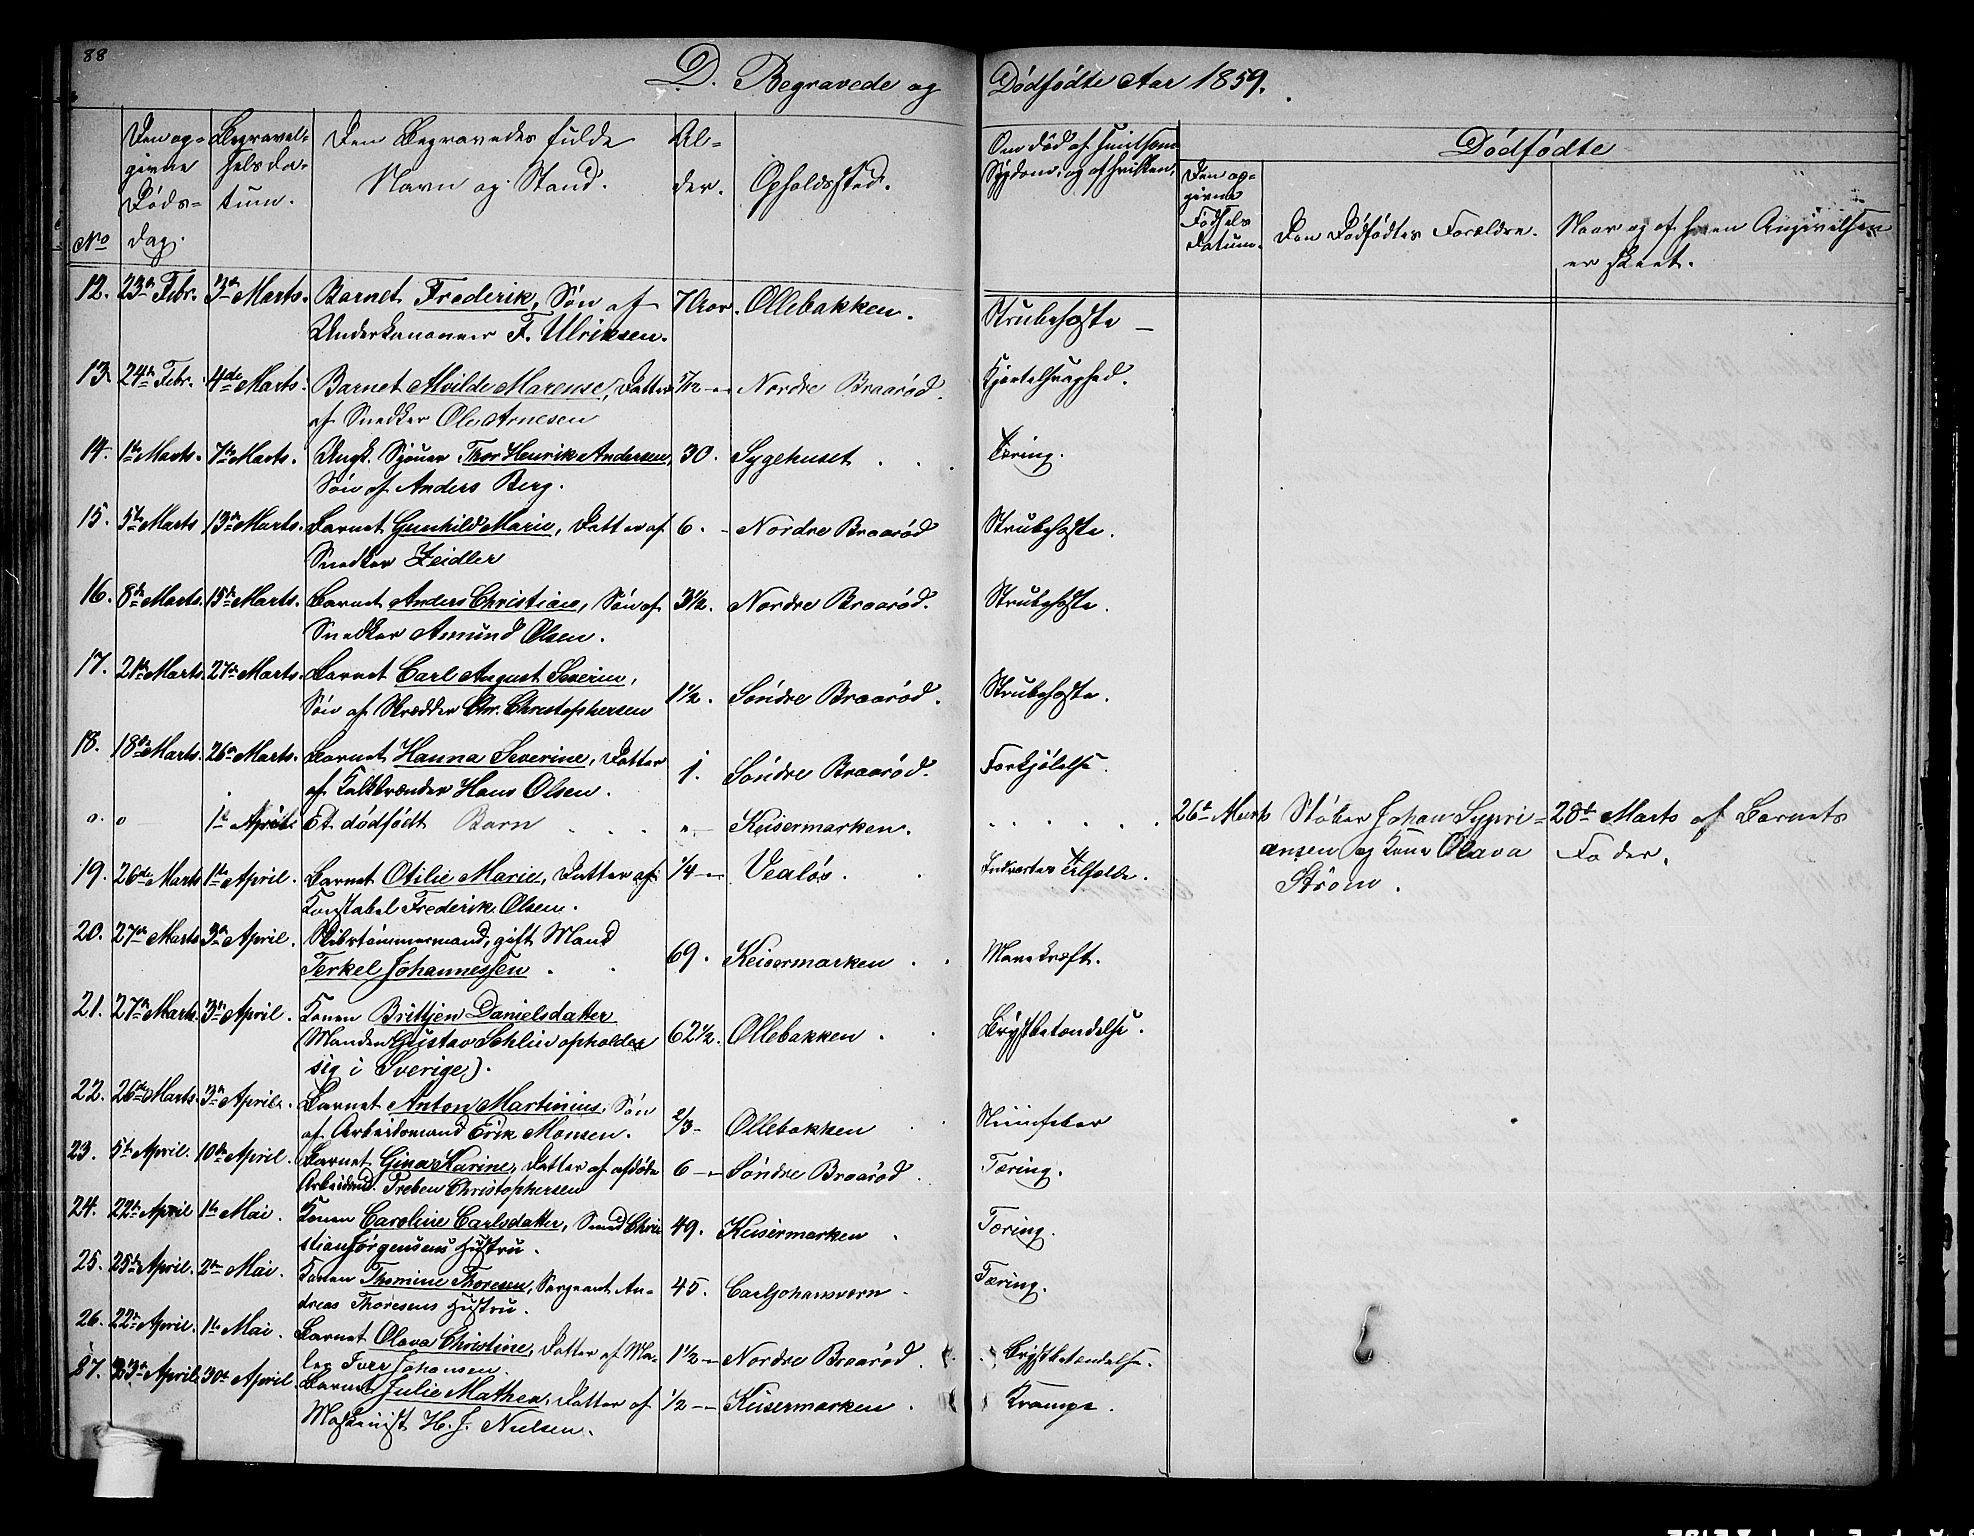 88
D. Begravede og Dødfødte Aar 1859.
No
Den op=
givne
Døds=
dag.
Begravel=
sesda=
tum.
Den Begravedes fulde
Navn og Stand.
Al=
der.
Opholdssted.
Om død af smitsom
Sygdom, og af hvilken.
Dødfødte
Den op=
givne
Fødsels
datum.
Den Dødfødtes Forældre.
Naar og af hvem Angivelsen
er skeet.
12. 23de Febr. 3die Marts. Barnet Frederik, Søn af 7 Aar. Ollebakken. Strubehoste
Underkanoneer F. Ulriksen.
13. 24de Febr. 4de Marts. Barnet Alvilde Marense, Datter 7/12 Nordre Braarød. Kjertelsvaghed.
af Snedker Ole Arnesen
14. 1te Marts. 7de Marts. Ungk. Sjouer Thor Henrik Andersen, 30. Sygehuset Tæring.
Søn af Anders Berg.
15. 5te Marts 13de Marts. Barnet Gunhild Marie, Datter af 6. Nordre Braarød Strubehoste.
Snedker Zeidler
16. 8de Marts. 15de Marts. Barnet Anders Christian, Søn af 3½. Nordre Braarød. Strubehoste.
Snedker Amund Olsen.
17. 21de Marts. 27de Marts. Barnet Carl August Severin,
Søn af Skrædder Chr. Christophersen 1½. Søndre Braarød. Strubehoste.
18. 18de Marts. 26de Marts. Barnet Hanna Severine, Datter 1. Søndre Braarød. Forkjølelse.
af Kalkbrænder Hans Olsen.
1te April Et dødfødt Barn Keisermarken. 26te Marts Støber Johan Sypri= 28de Marts af Barnets
ansen og Kone Olava Fader.
Strøm.
19. 26de Marts 1te April. Barnet Otilie Marie, Datter af 1/4 Vealøs. Indvortes Tilfælde.
Konstabel Frederik Olsen.
20. 27de Marts 3die April. Skibstømmermand, gift Mand
Terkel Johannessen 69. Keisermarken Mavekræft.
21. 27de Marts. 3die April. Konen Brittjen Danielsdatter
(Manden Gustav Schlin opholder 62½. Ollebakken Brystbetændelse.
sig i Sverige).
22. 26de Marts. 3die April. Barnet Anton Martinius, Søn
af Arbeidsmand Erik Monsen. 2/3 Ollebakken
23. 5te April. 10de April. Barnet Gina Karine, Datter af afdøde 6 Søndre Braarød Tæring.
Arbeidsmd. Preben Christophersen
24. 22de April 1te Mai. Konen Caroline Carlsdatter, Smed Chri 49. Keisermarken Tæring.
stian Jørgensens Hustru.
25. 25de April. 2den Mai. Konen Thomine Thoresen, Sergeant An= 45. Carljohansværn Tæring.
dreas Thoresens Hustru.
26. 22de April. 1te Mai. Barnet Olava Christine, Datter af Ma= 1½ Nordre Braarød. Brystbetændelse.
ler Iver Johansen.
27. 23de April. 30te April Barnet Julie Mathea, Datter af 1/2 Keisermarken. Krampe.
Maskinist H. J. Nielsen.